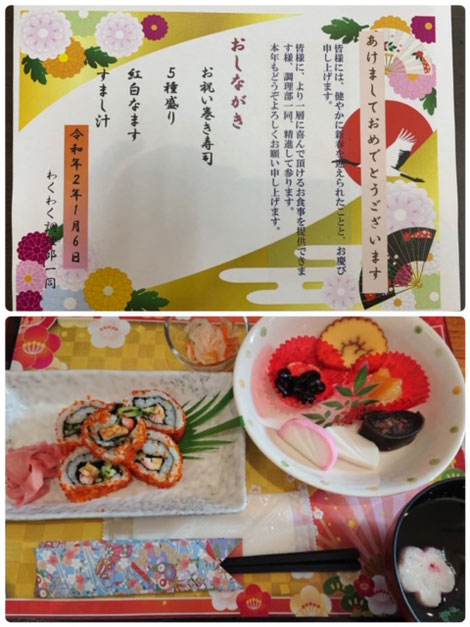 あけましておめでとうございます
皆様には、健やかに新春を迎えられたことと、お慶び
申し上げます。
皆様に、より一層に喜んで頂けるお食事を提供できま
す様、調理部一同、精進して参ります。
本年もどうぞよろしくお願い申し上げます。
おしながき
お祝い巻き寿司
５種盛り
紅白なます
すまし汁
令和２年１月６日
わくわく調理部一同